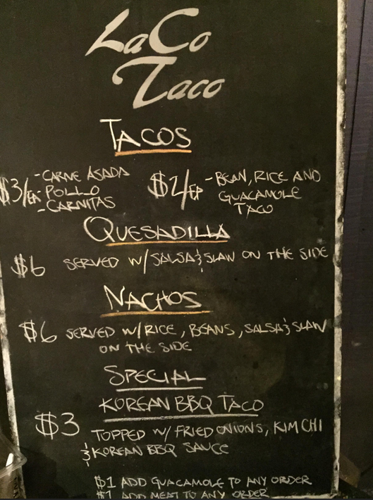 LaCo
Taco
TACOS
$3/EA -CARNE ASADA
-POLLO
-CARNITAS
$2/EA -BEAN, RICE AND
GUACAMOLE
TACO
QUESADILLA
$6 SERVED W/ SALSA & SLAW ON THE SIDE
NACHOS
$6 SERVED W/ RICE, BEANS, SALSA & SLAW
ON THE SIDE
SPECIAL
KOREAN BBQ TACO
$3 TOPPED W/ FRIED ONIONS, KIM CHI
& KOREAN BBQ SAUCE
$1 ADD GUACAMOLE TO ANY ORDER
$1 ADD MEAT TO ANY ORDER